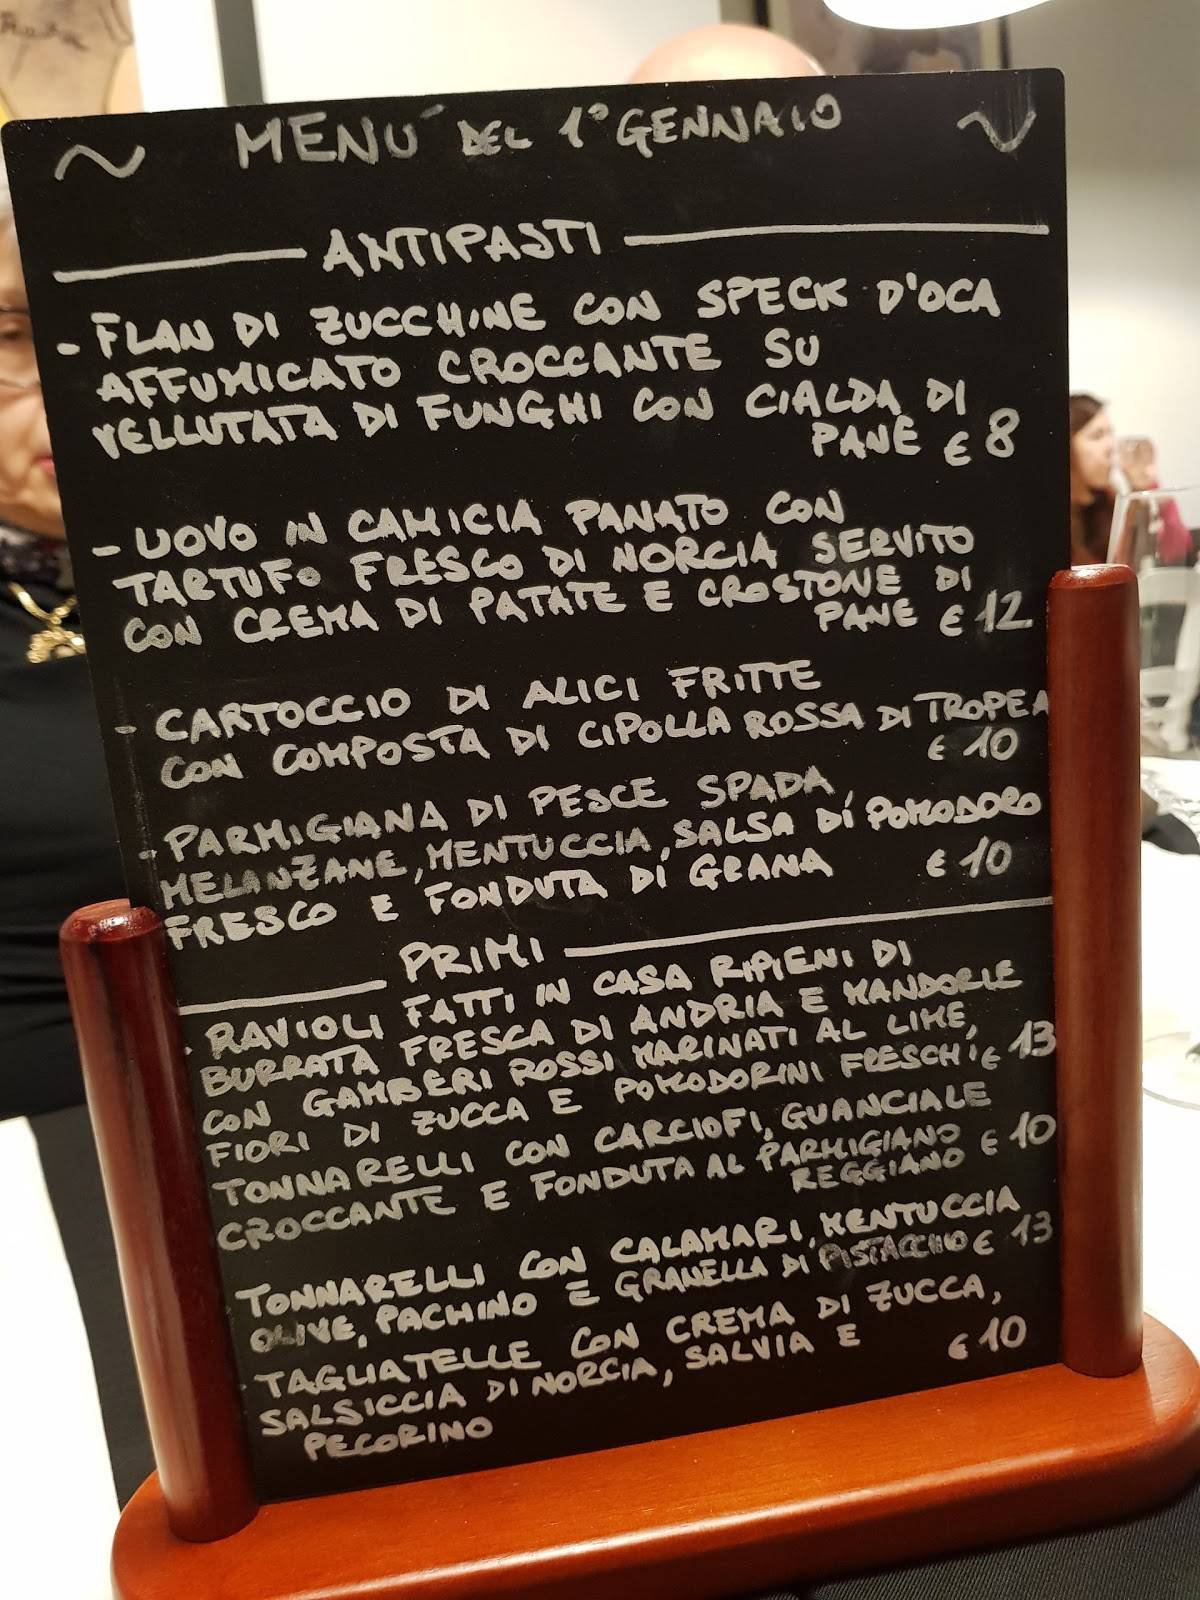 MENÚ DEL 1° GENNAIO
ANTIPASTI
- FLAN DI ZUCCHINE CON SPECK D'OCA
AFFUMICATO CROCCANTE SU
VELLUTATA DI FUNGHI CON CIALDA DI
PANE € 8
- UOVO IN CAMICIA PANATO CON
TARTUFO FRESCO DI NORCIA SERVITO
CON CREMA DI PATATE E CROSTONE DI
PANE € 12
- CARTOCCIO DI ALICI FRITTE
CON COMPOSTA DI CIPOLLA ROSSA DI TROPEA
€ 10
- PARMIGIANA DI PESCE SPADA,
MELANZANE, MENTUCCIA, SALSA DÍ POMODORO
FRESCO E FONDUTA DÍ GRANA € 10
PRIMI
. RAVIOLI FATTI IN CASA RIPIENI DI
BURRATA FRESCA DI ANDRIA E MANDORLE
CON GAMBERI ROSSI MARINATI AL LIME,
FIORI DI ZUCCA E POMODORINI FRESCHI € 13
TONNARELLI CON CARCIOFI, GUANCIALE
CROCCANTE E FONDUTA AL PARMIGIANO
REGGIANO € 10
TONNARELLI CON CALAMARI, MENTUCCIA
OLIVE, PACHINO E GRANELLA DÍ PISTACCHIO € 13
. TAGLIATELLE CON CREMA DI ZUCCA,
SALSICCIA DI NORCIA, SALVIA E
PECORINO € 10